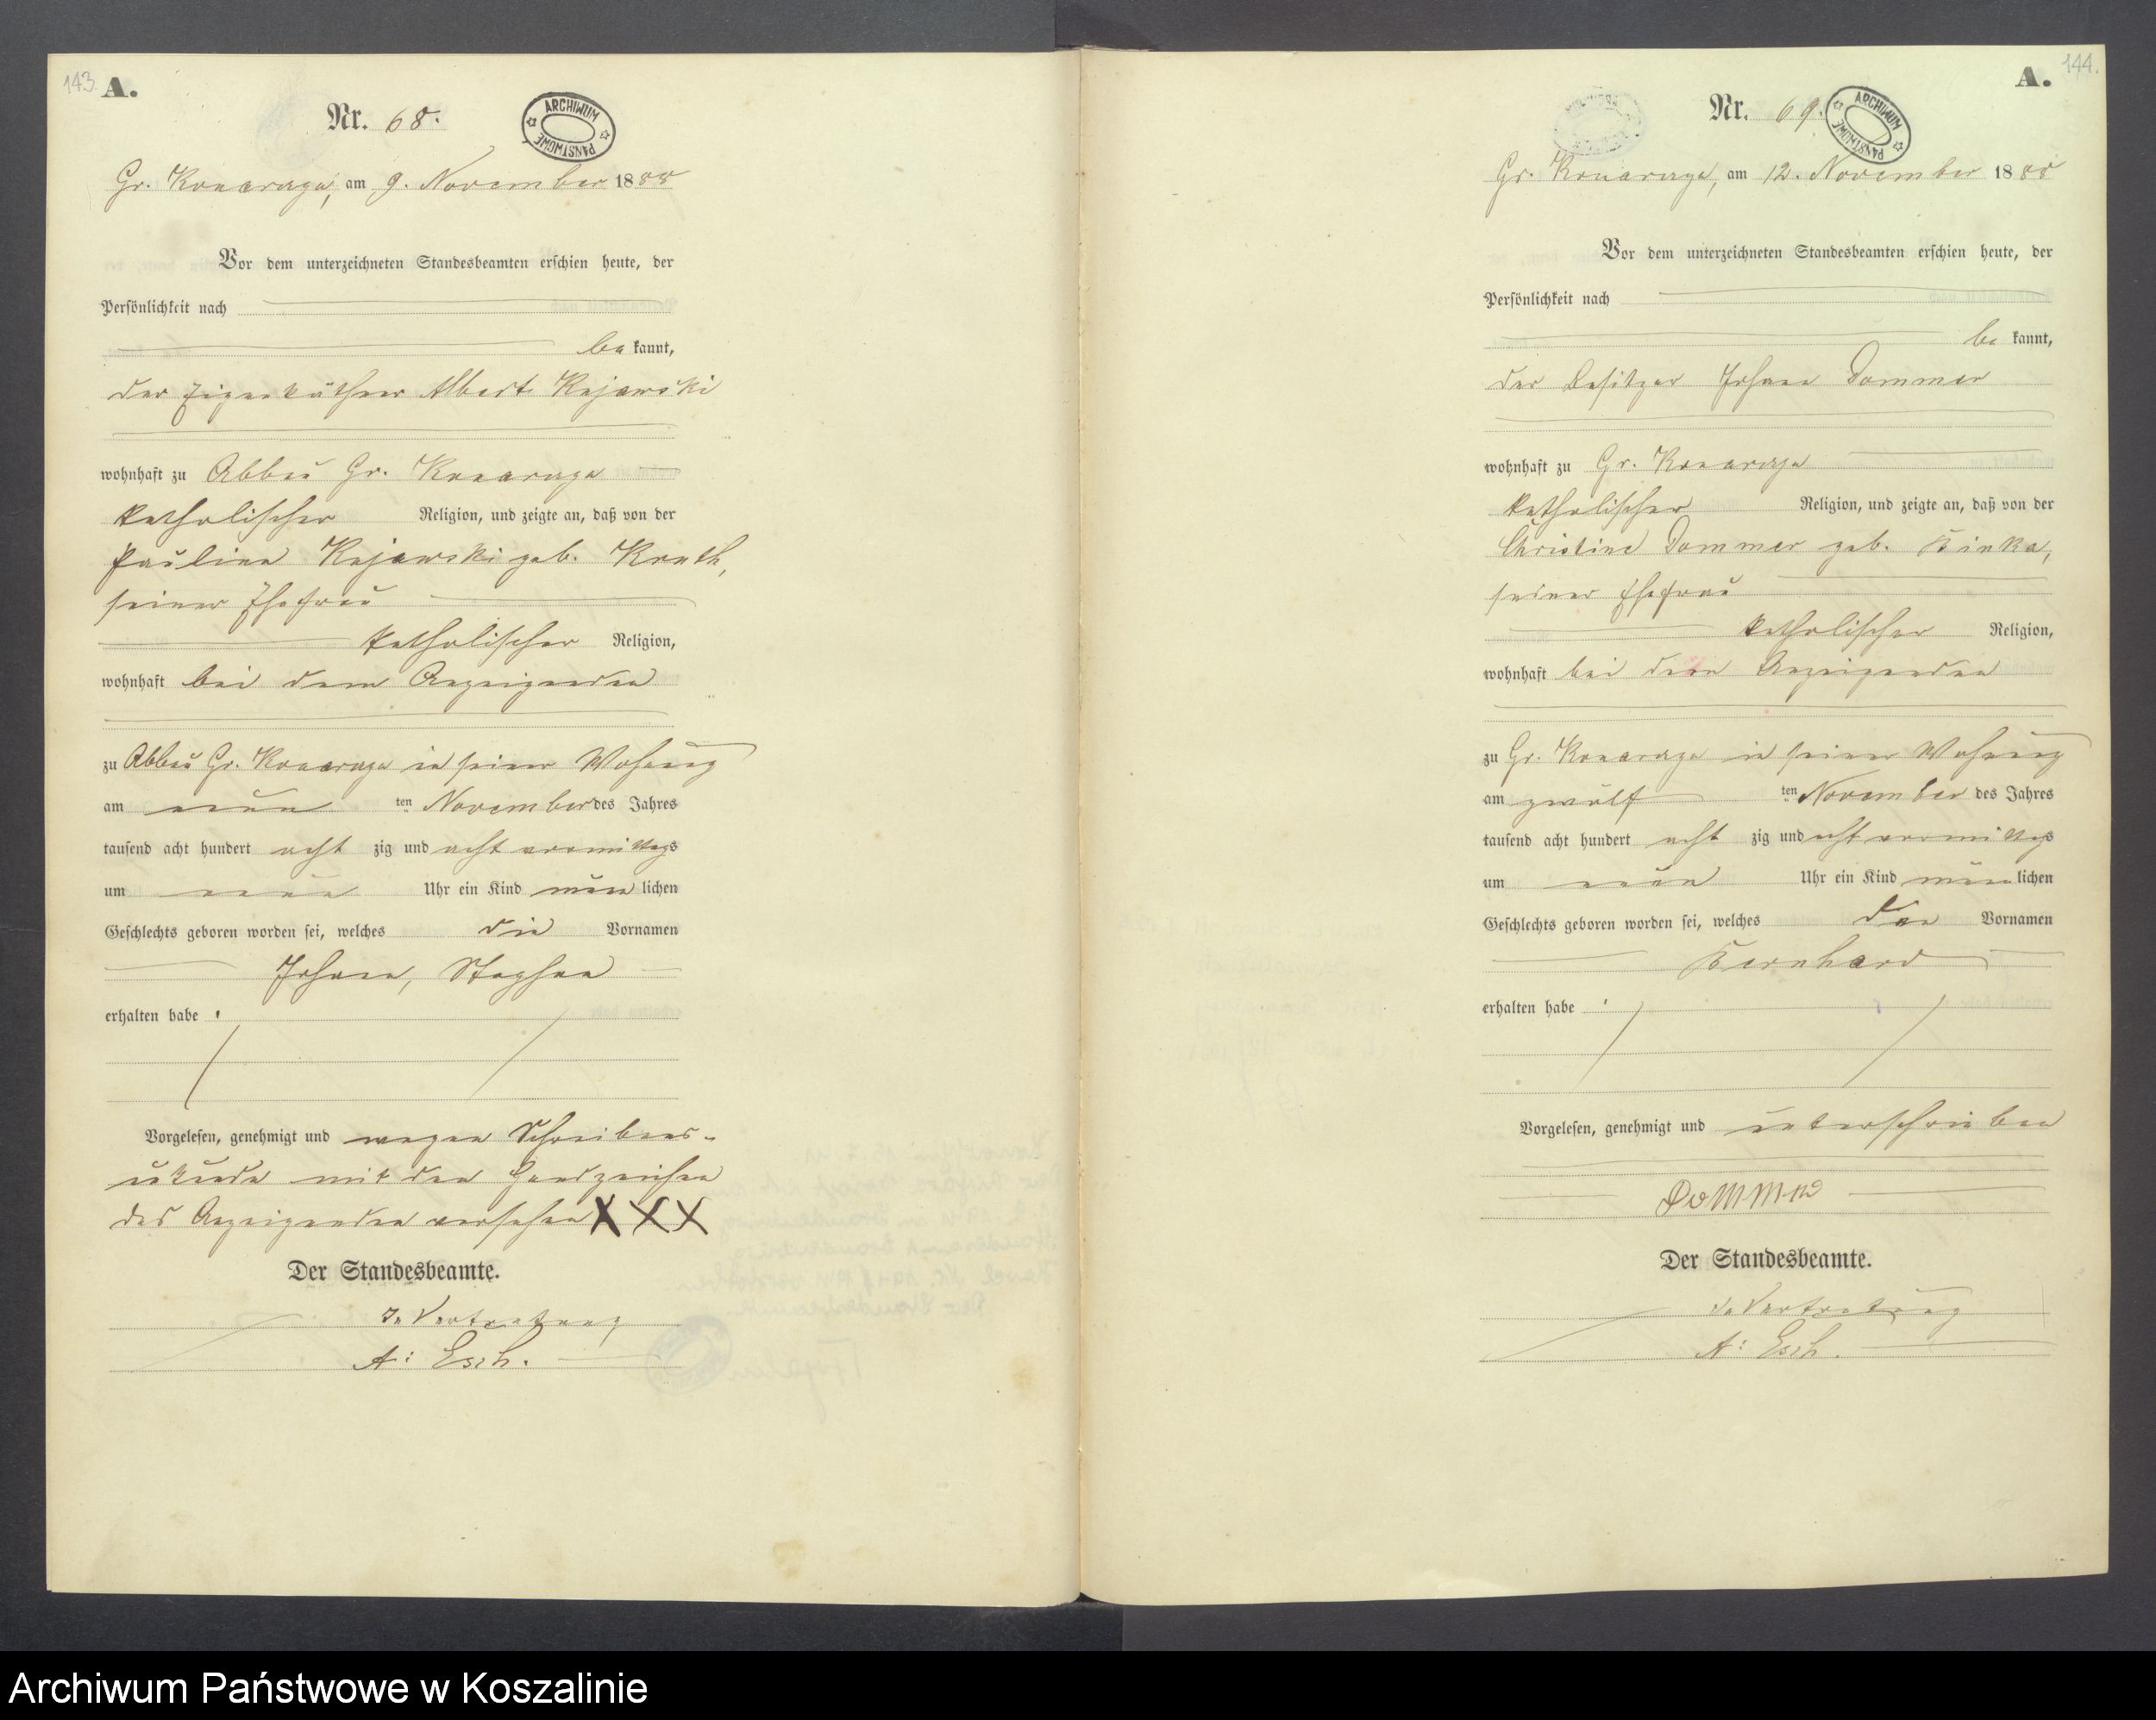 143.
A.
Nr. 68.
ARCHIWUM PAŃSTWOWE
Gr. Konarzyn, am 9. November 1888
Vor dem unterzeichneten Standesbeamten erschien heute, der
Persönlichkeit nach
be kannt,
der Eigenkäthner Albert Kujawski
wohnhaft zu Abbau Gr. Konarzyn
katholischer Religion, und zeigte an, daß von der
Pauline Kujawski geb.
seiner Ehefrau
katholischer Religion,
wohnhaft bei dem Anzeigenden
zu Abbau Gr. Konarzyn in seiner Wohnung
am neun ten November des Jahres
tausend acht hundert acht zig und acht vormittags
um neun Uhr ein Kind männ lichen
Geschlechts geboren worden sei, welches die Vornamen
Johann, Stephan
erhalten habe.
Vorgelesen, genehmigt und wegen Schreibens-
unkunde mit den Handzeichen
des Anzeigenden versehen XXX
Der Standesbeamte.
In Vertretung
A: Esch.
144.
A.
Nr. 69.
ARCHIWUM PAŃSTWOWE
Gr. Konarzyn, am 12. November 1888
Vor dem unterzeichneten Standesbeamten erschien heute, der
Persönlichkeit nach
be kannt,
der Besitzer Johann Dommer
wohnhaft zu Gr. Konarzyn
katholischer Religion, und zeigte an, daß von der
Christine Dommer geb. Binka,
seiner Ehefrau
katholischer Religion,
wohnhaft bei dem Anzeigenden
zu Gr. Konarzyn in seiner Wohnung
am zwölf ten November des Jahres
tausend acht hundert acht zig und acht vormittags
um neun Uhr ein Kind männ lichen
Geschlechts geboren worden sei, welches den Vornamen
Bernhard
erhalten habe.
Vorgelesen, genehmigt und unterschrieben
Dommer
Der Standesbeamte.
In Vertretung
A: Esch.
Archiwum Państwowe w Koszalinie